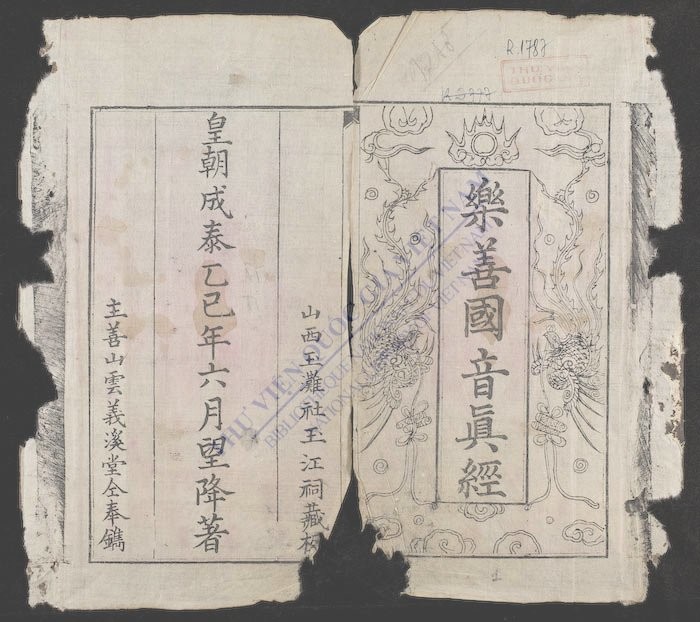 R.1787
THƯ V
QUỐC
樂善國音眞經
山西玉灘社玉江祠藏板
皇朝成泰乙巳年六月望降著
主善山雲義溪堂仝奉鐫
THƯ VIỆN QUỐC GIA VIỆT NAM
BIBLIOTHEQUE NATIONALE DU VIETNAM
NATIONAL LIBRARY OF VIETNAM